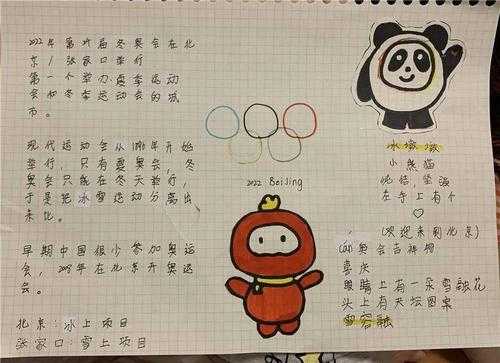 2022年第24届冬奥会在北
京/张家口举行
第一个举办夏季运动
会和冬季运动会的城
市。
现代运动会从1896年开始
举行，只有夏奥会，冬
奥会只能在冬天举行，
于是把冰雪运动分离出
来化。
早期中国很少参加奥运
会，2008年在北京开奥运
会。
北京：冰上项目
张家口：雪上项目
2022 Beijing
冰墩墩
小熊猫
纯洁，坚强
左手上有个
♡
(欢迎来到北京)
奥会吉祥物
喜庆
眼睛上有一朵雪融花
头上有天坛图案
雪容融